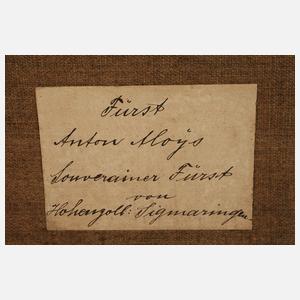 Fürst
Anton Aloÿs
Souverainer Fürst
von
Hohenzoll: Sigmaringen